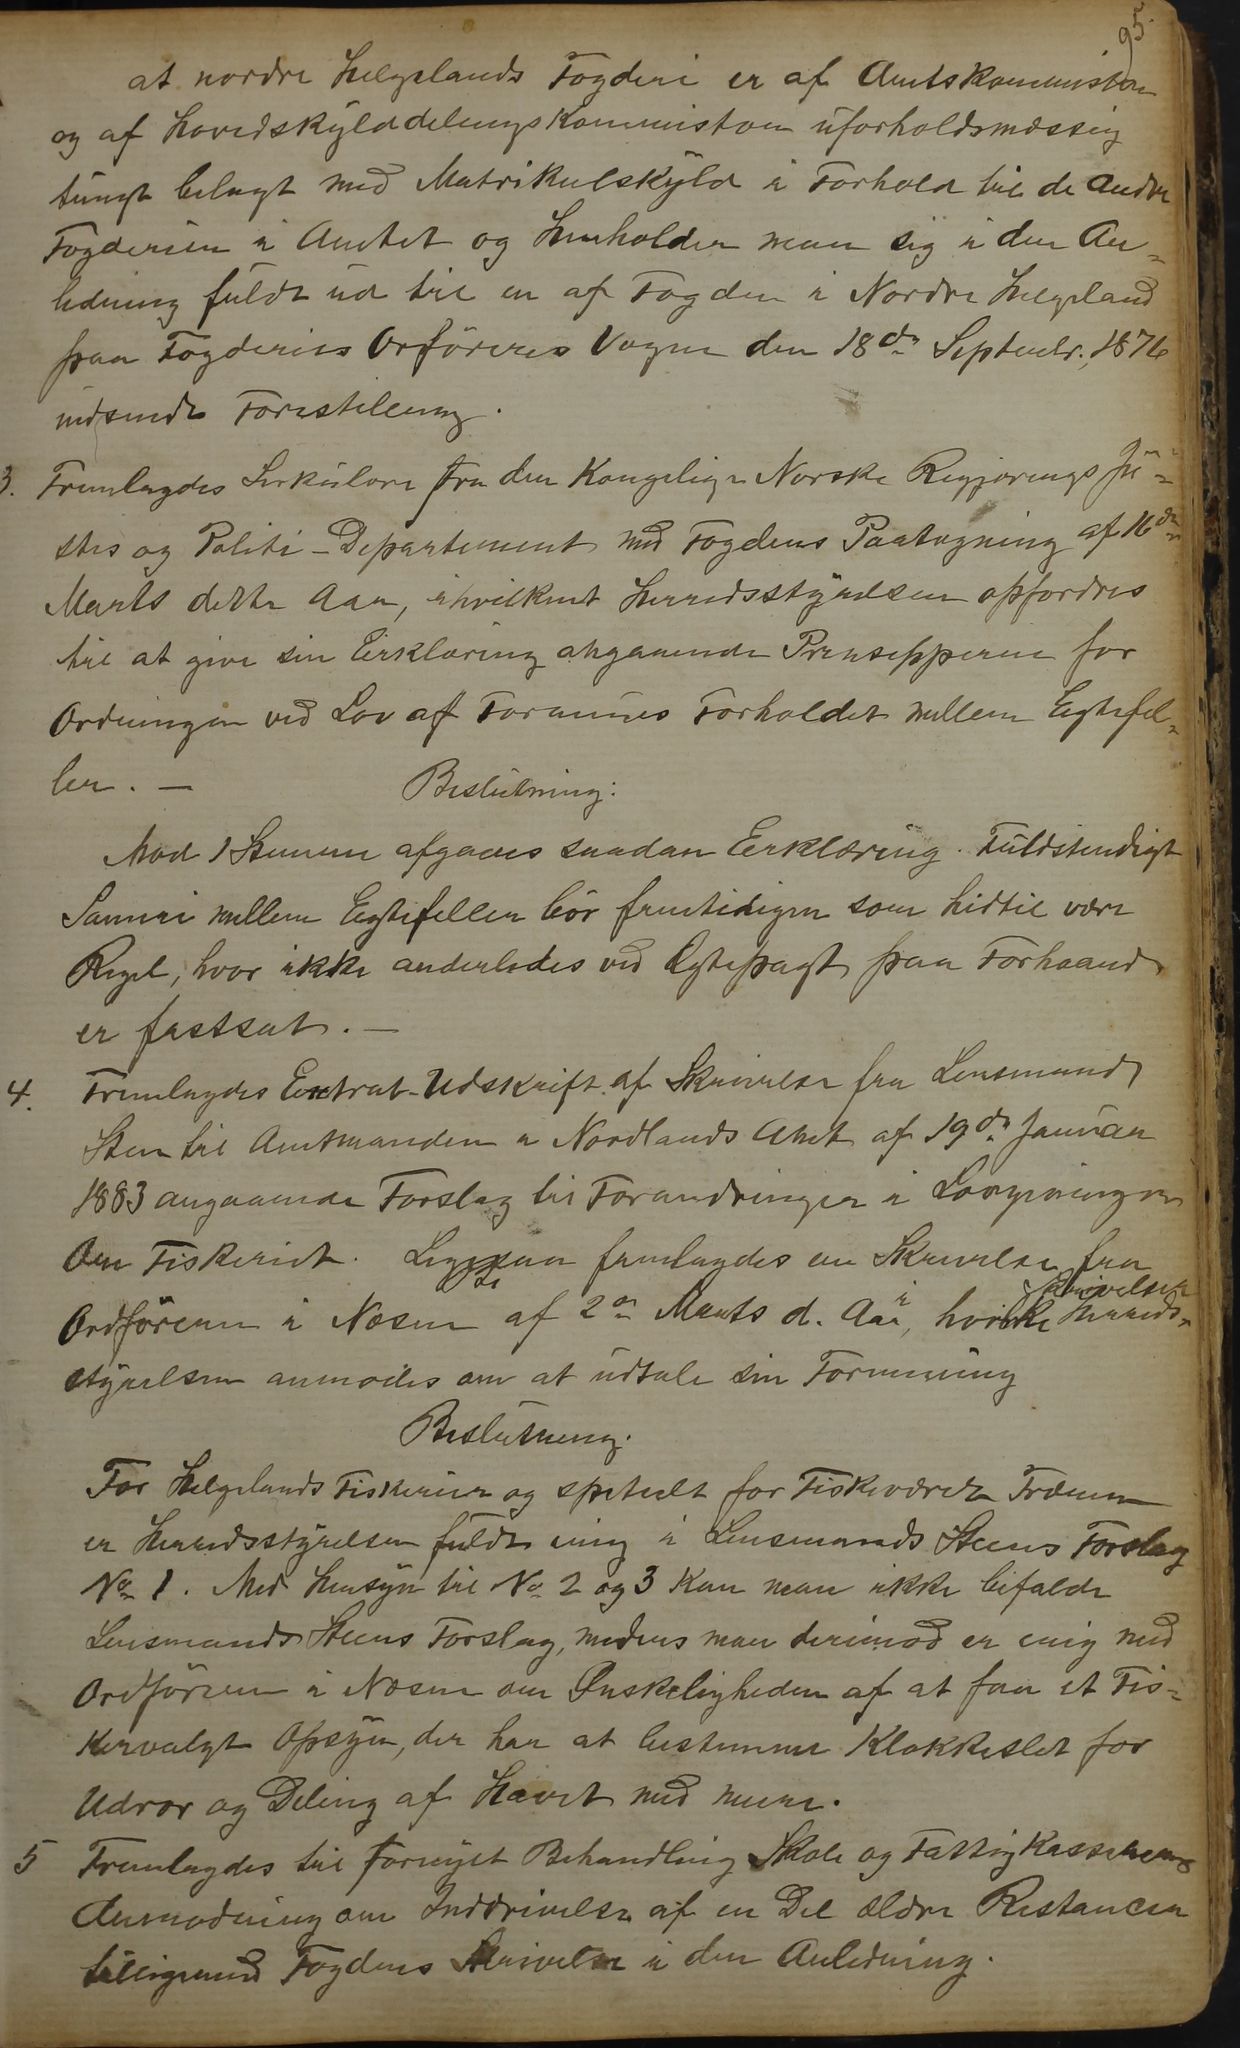 95.
at nordre Helgelands Fogderi er af Amtskommission
og af Hovedskylddelingskommissionen uforholdsmæssig
tungt belagt med Matrikulskyld i Forhold til de andre
Fogderier i Amtet og henholder man sig i den An-
ledning fuldt ud til en af Fogden i Nordre Helgeland
paa Fogderiets Orförers Vegne den 18de Septembr. 1876
indsendt Forestilling.
3. Fremlagdes Sirkulære fra den Kongelige Norske Regjerings Ju-
stis og Politi-Departement med Fogdens Paategning af 16de
Marts dette Aar, ihvilket Herredsstyrelsen opfordres
til at give sin Erklæring angaaende Prinsipperne for
Ordningen ved Lov af Formues Forholdet mellem Egtefel-
ler. —
Beslutning:
Mod 1 Stemme afgaves saadan Erklæring. Fuldstendigt
Sameie mellem Egtefeller bör fremtidigen som hidtil være
Regel, hvor ikke anderledes ved Egtepagt paa Forhaand
er fastsat. —
4. Fremlagdes Extrat-Udskrift af Skrivelse fra Lensmand
Sten til Amtmanden i Nordlands Amt af 19de Januar
1883 angaaende Forslag til Forandringer i Lovgivningen
Om Fiskeriet. Ligesaa fremlagdes en Skrivelse fra
Ordföreren i Næsne af 2den Marts d. Aar, i hvilke Skrivelser Herreds-
styrelsen anmodes om at udtale sin Formening
Beslutning.
For Helgelands Fiskerier og spesielt for Fiskeværet Trænen
er Herredsstyrelsen fuldt enig i Lensmands Steens Forslag
No 1. Med Hensyn til No 2 og 3 kan man ikke bifalde
Lensmands Steens Forslag, medens man derimod er enig med
Ordföreren i Næsne om Ønskeligheden af at faa et Fis-
kervalgt Opsyn, der har at bestemme Klokkeslet for
Udror og Deling af Havet med mere.
5 Fremlagdes til fornyet Behandling Skole og Fattigkassernes
Anmodning om Inddrivelse af en Del ældre Restancer
tilligemed Fogdens Skrivelse i den Anledning.